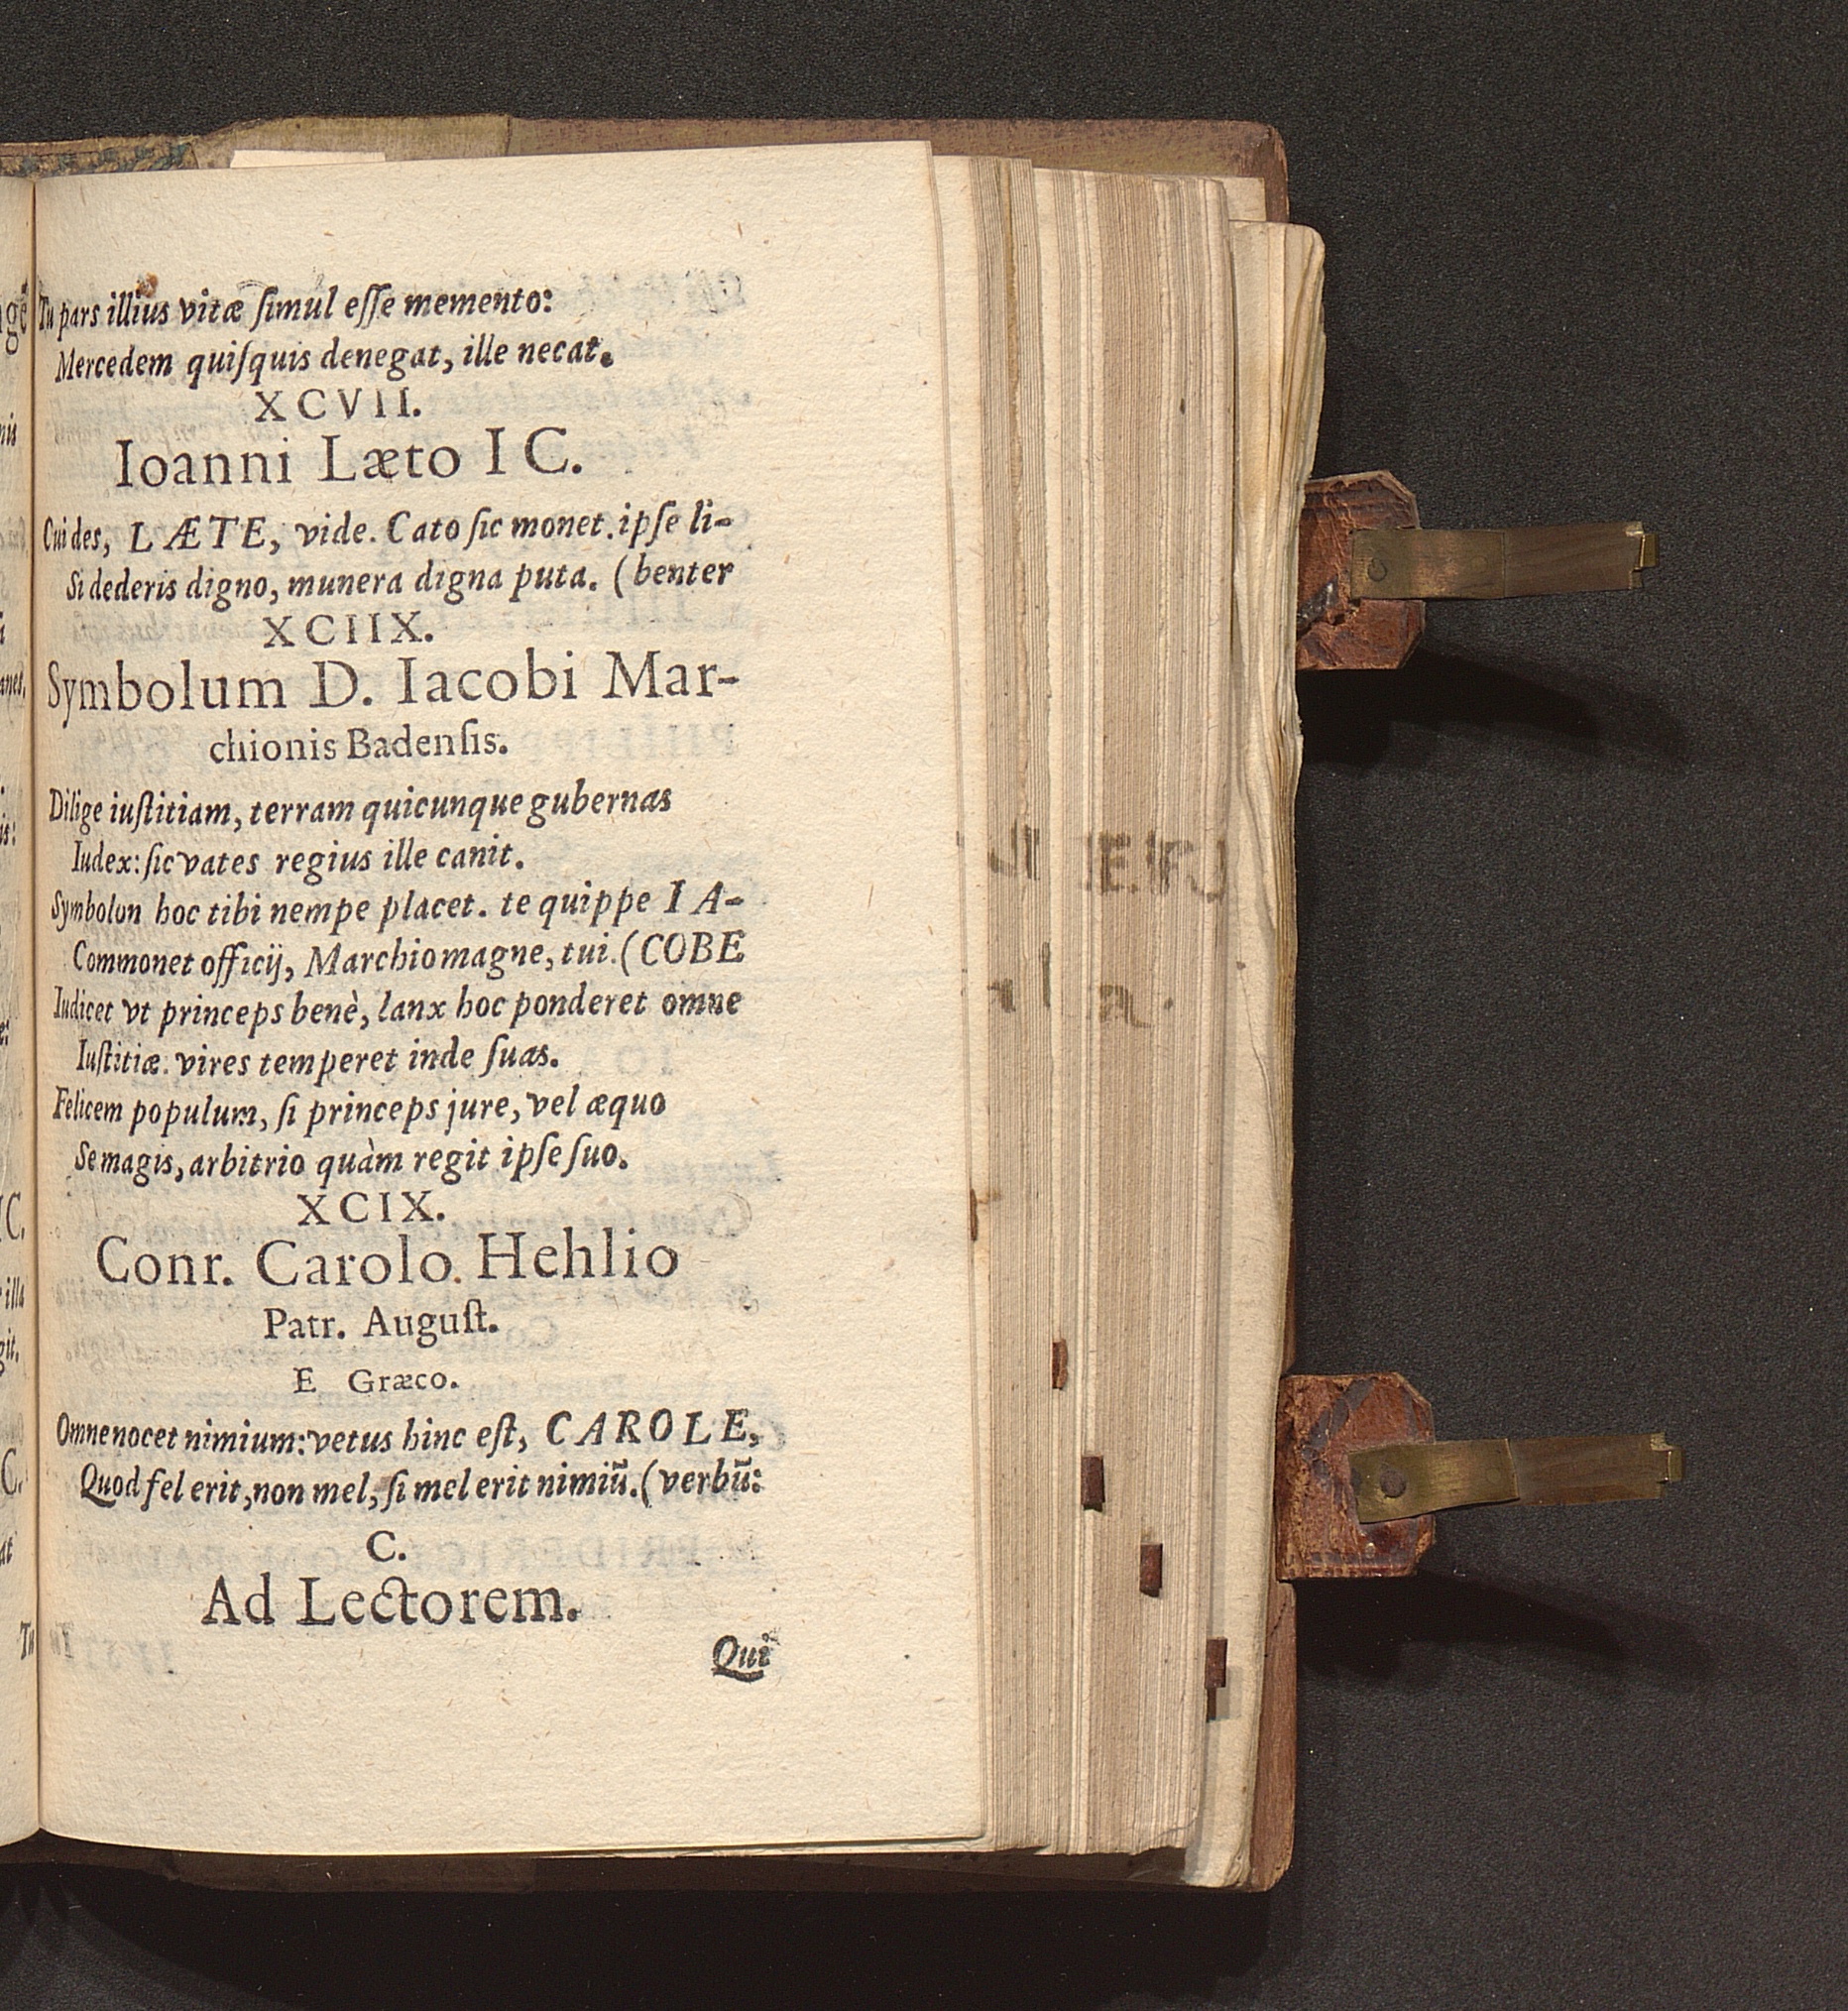 Tu pars illius vitæ ſimul eſſe memento:
Mercedem quiſquis denegat, ille necat.
XCVII.
Ioanni Læto IC.
Cui des, LÆTE, vide. Cato ſic monet. ipſe li-
Si dederis digno, munera digna puta. (benter
XCIIX.
Symbolum D. Iacobi Mar-
chionis Badenſis.
Dilige iuſtitiam, terram quicunque gubernas
Iudex: ſic vates regius ille canit.
Symbolon hoc tibi nempe placet. te quippe IA-
Commonet officij, Marchio magne, tui. (COBE
Iudicet vt princeps benè, lanx hoc ponderet omne
Iuſtitiæ. vires temperet inde ſuas.
Felicem populum, ſi princeps jure, vel æquo
Se magis, arbitrio quàm regit ipſe ſuo.
XCIX.
Conr. Carolo Hehlio
Patr. Auguſt.
E Græco.
Omne nocet nimium: vetus hinc eſt, CAROLE,
Quod fel erit, non mel, ſi mel erit nimiū. (verbū:
C.
Ad Lectorem.
Qui